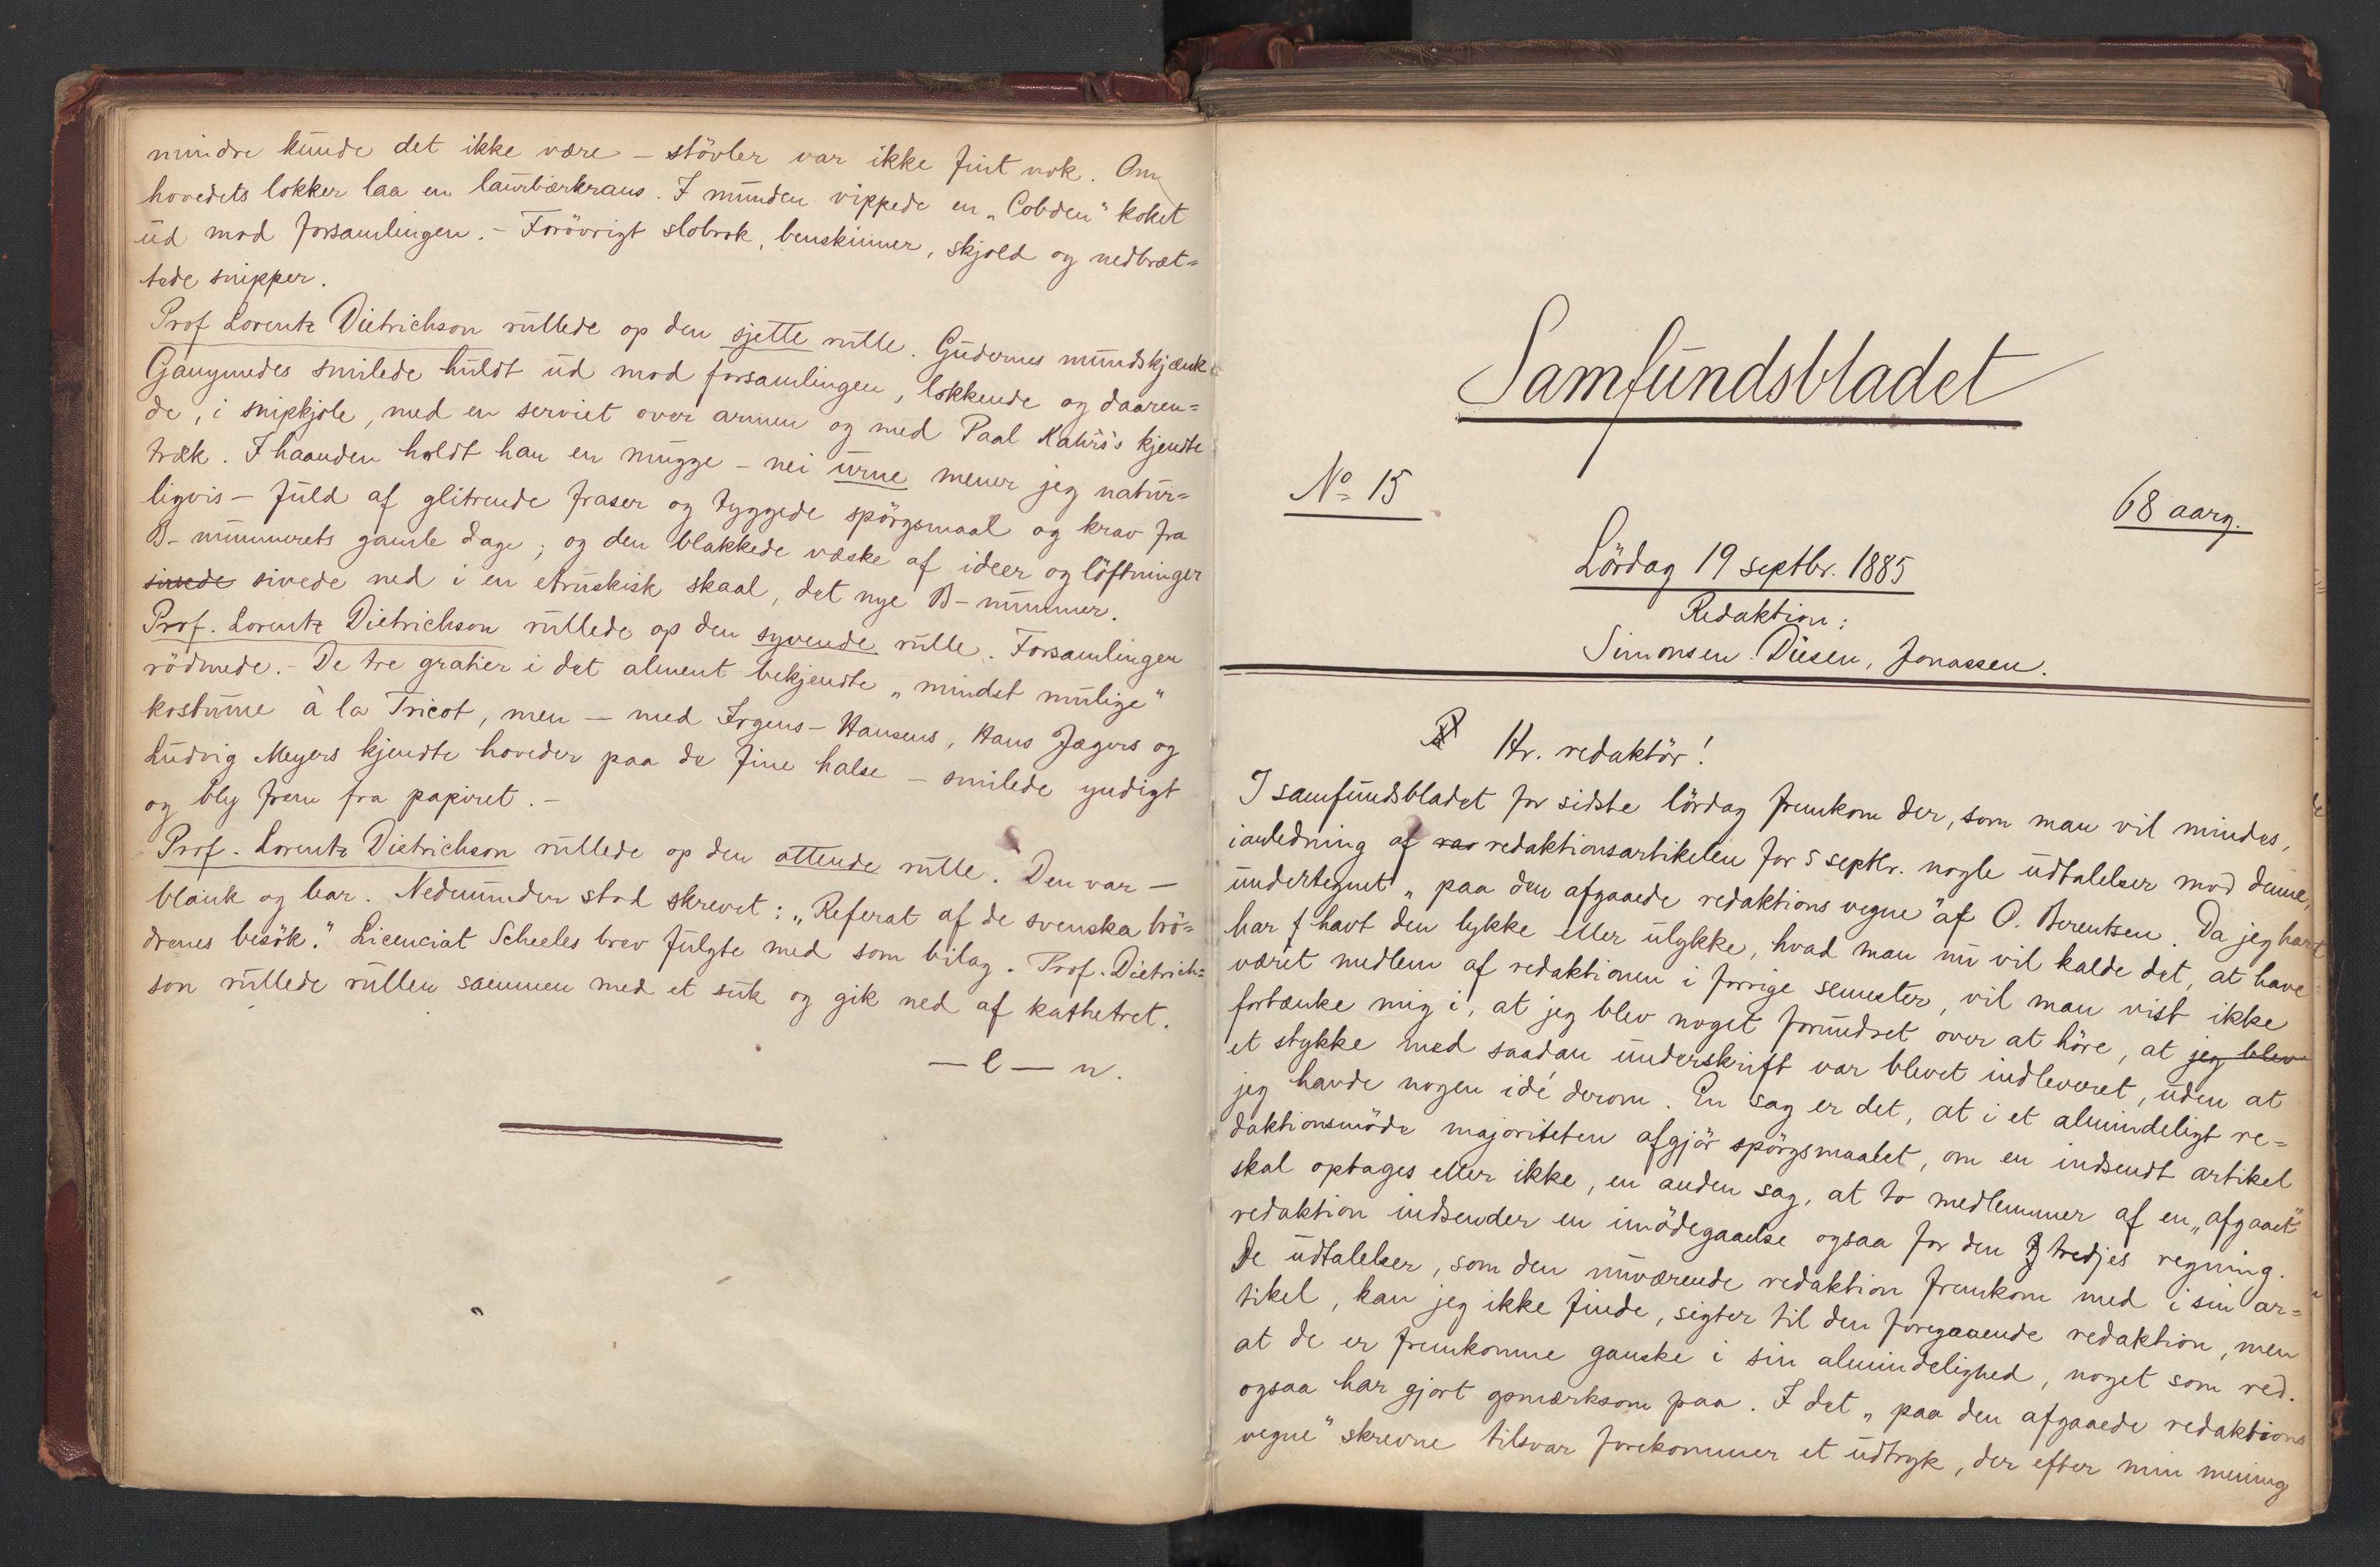 mindre kunde det ikke være – stövler var ikke fint nok. Om
hovedets lokker laa en laurbærkrans. I munden vippede en „Cobden“ koket
ud mod forsamlingen. – Forövrigt slobrok, benskinner, skjold og nedbræt=
tede snipper.
Prof Lorentz Dietrichson rullede op den sjette rulle. Gudernes mundskjænk
Ganymedes smilede huldt ud mod forsamlingen, lokkende og daaren=
de, i snipkjole, med en serviet over armen og med Paal Kahrs's kjendte
træk. I haanden holdt han en mugge – nei urne mener jeg natur=
ligvis – fuld af glitrende fraser og tyggede spörgsmaal og krav fra
B-nummerets gamle dage; og den blakkede væske af ideer og löftninger
sivede ned i en etruskisk skaal, det nye B-nummer.
Prof. Lorentz Dietrichson rullede op den syvende rulle. Forsamlingen
rödmede. – De tre gratier i det alment bekjendte „mindst mulige“
kostume à la Tricot, men – med Irgens-Hansens, Hans Jægers og
Ludvig Meyers kjendte hoveder paa de fine halse – smilede yndigt
og bly frem fra papiret. –
Prof. Lorentz Dietrichson rullede op den ottende rulle. Den var –
blank og bar. Nedenunder stod skrevet: „Referat af de svenska brö=
drenes besök.“ Licenciat Scheeles brev fulgte med som bilag. Prof. Dietrich=
son rullede rullen sammen med et suk og gik ned af kathetret.
– l – n.
Samfundsbladet
No 15
68 aarg.
Lördag 19 septbr. 1885
Redaktion:
Simonsen. Duesen, Jonassen.
Hr. redaktör!
I samfundsbladet for sidste lördag fremkom der, som man vil mindes,
ianledning af redaktionsartikelen for 5 septbr. nogle udtalelser mod denne,
undertegnet „paa den afgaaede redaktions vegne“ af O. Berentsen. Da jeg har
har havt den lykke eller ulykke, hvad man nu vil kalde det, at have
været medlem af redaktionen i forrige semester, vil man vist ikke
fortænke mig i, at jeg blev noget forundret over at höre, at jeg blev
et stykke med saadan underskrift var blevet indleveret, uden at
jeg havde nogen idé derom. En sag er det, at i et almindeligt re=
daktionsmöde majoriteten afgjör spörgsmaalet, om en indsendt artikel
skal optages eller ikke, en anden sag, at to medlemmer af en „afgaaet“
redaktion indsender en imödegaaelse ogsaa for den tredjes regning.
De udtalelser, som den nuværende redaktion fremkom med i sin ar=
tikel, kan jeg ikke finde, sigter til den foregaaende redaktion, men
at de er fremkomne ganske i sin almindelighed, noget som red.
ogsaa har gjort opmærksom paa. I det „paa den afgaaede redaktions
vegne“ skrevne tilsvar forekommer et udtryk, der efter min mening